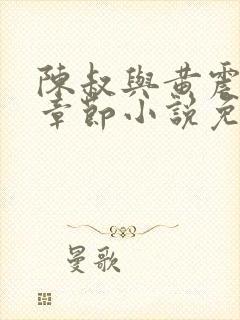 陳叔與黃震
章節小說免
曼歌